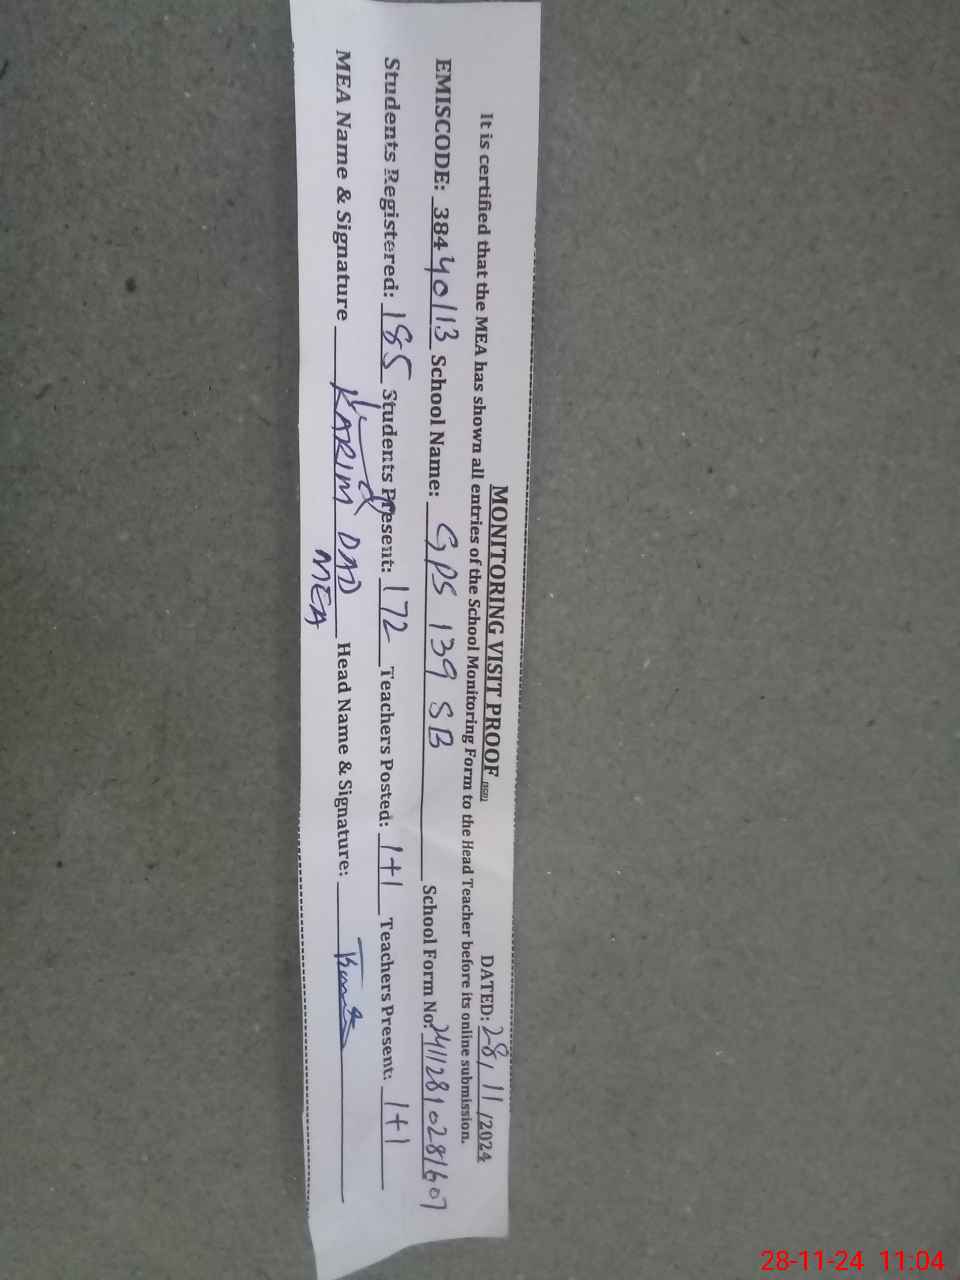 MONITORING VISIT PROOF DATED: 28/11/2024
It is certified that the MEA has shown all entries of the School Monitoring Form to the Head Teacher before its online submission.
EMISCODE: 38440113 School Name: GPS 139 SB School Form No: 24112810281607
Students Registered: 185 Students Present: 172 Teachers Posted: 1+1 Teachers Present: 1+1
MEA Name & Signature KARIM DAD Head Name & Signature:
MEA
28-11-24 11:04